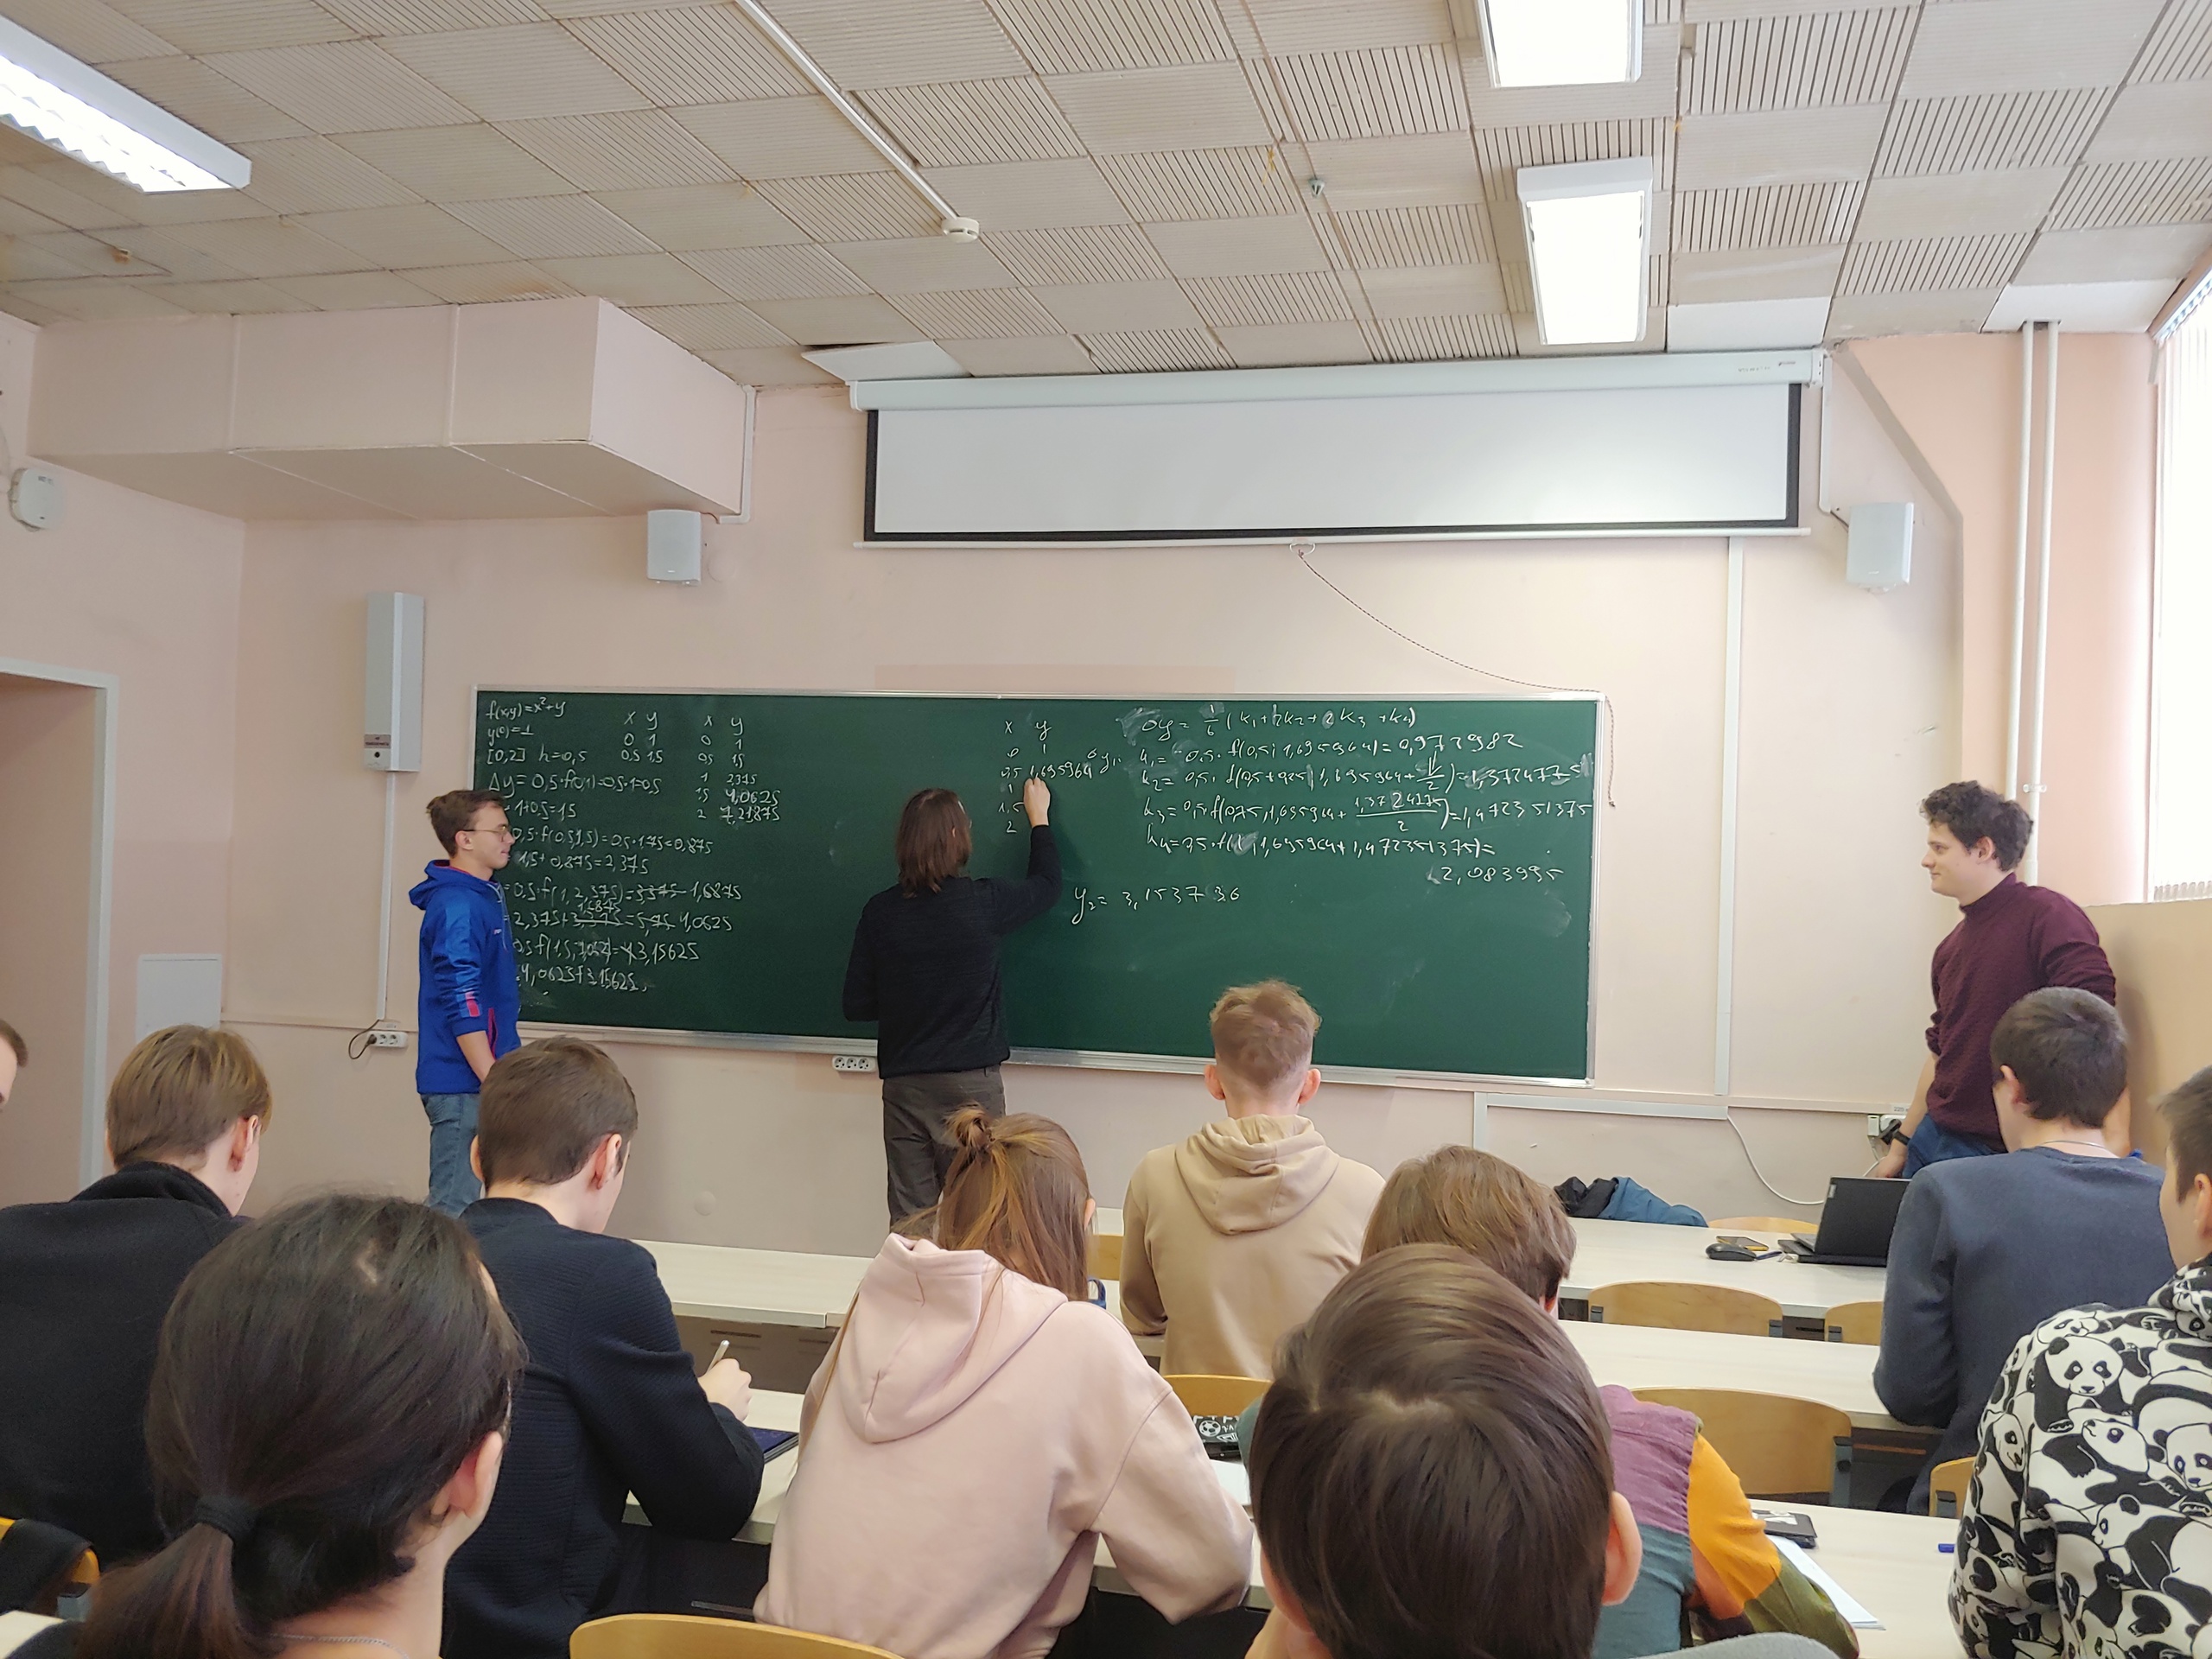 f(x,y)=x²+y
y(0)=1
[0,2] h=0,5
Δy=0,5·f(0,1)=0,5·1=0,5
1+0,5=1,5
0,5·f(0,5;1,5)=0,5·1,75=0,875
1,5+0,875=2,375
=0,5·f(1,2,375)=3375 1,6875
1,6875
=2,375+ = 4,0625
0,5f(1,5, )= 3,15625
4,0625+3,15625,
x y
0 1
0,5 1,5
x y
0 1
0,5 1,5
1 2,375
1,5 4,0625
2 7,21875
x y
0 1
0,5 1,695964
1
1,5
2
Δy = 1/6 (k₁+2k₂+2k₃+k₄)
k₁= 0,5· f(0,5; 1,695964)= 0,972982
k₂= 0,5· f(0,5+0,25; 1,695964+ /2)=1,3724775
k₃= 0,5·f(0,75, 1,695964+ 1,3724775/2)=1,472351375
k₄=0,5·f(1, 1,695964+1,472351375)=
2,083995
y₂= 3,153736